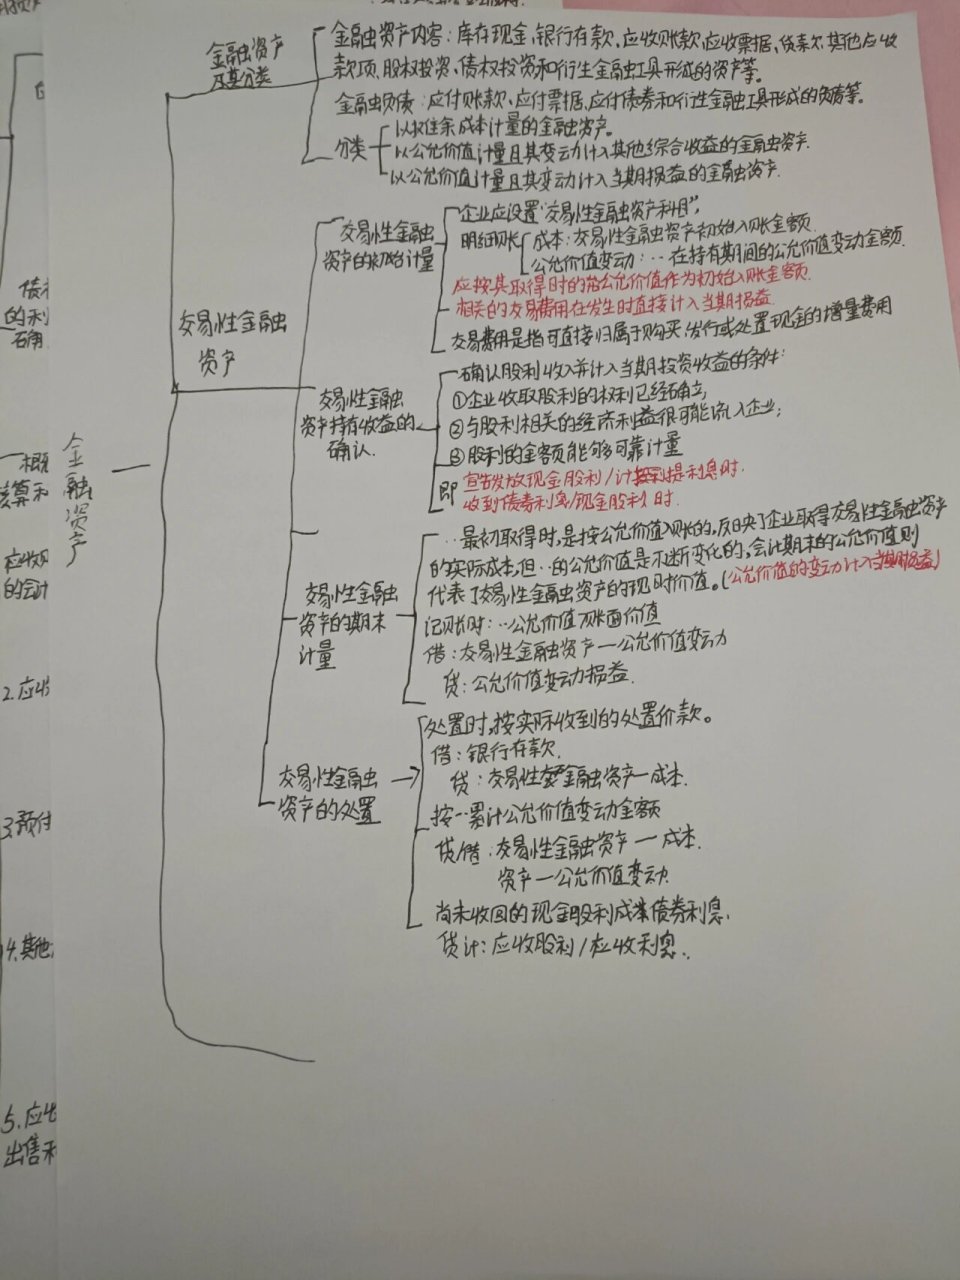 金融资产
金融资产
及其分类
金融资产内容：库存现金，银行存款、应收账款，应收票据、贷款，其他应收
款项、股权投资、债权投资和衍生金融工具形成的资产等。
金融负债：应付账款、应付票据，应付债券和衍生金融工具形成的负债等。
分类
以摊余成本计量的金融资产。
以公允价值计量且其变动计入其他综合收益的金融资产.
以公允价值计量且其变动计入当期损益的金融资产.
交易性金融
资产
交易性金融
资产的初始计量
企业应设置“交易性金融资产科目”，
明细账
成本：交易性金融资产初始入账金额.
公允价值变动：‥在持有期间的公允价值变动金额.
应按其取得时的公允价值作为初始入账金额.
相关的交易费用在发生时直接计入当期损益.
交易费用是指可直接归属于购买、发行或处置现金的增量费用
交易性金融
资产持有收益的
确认.
确认股利收入并计入当期投资收益的条件：
①企业收取股利的权利已经确立；
②与股利相关的经济利益很可能流入企业；
③股利的金额能够可靠计量
即
宣告发放现金股利/计提利息时.
收到债券利息/现金股利时.
交易性金融
资产的期末
计量
‥最初取得时，是按公允价值入账的，反映了企业取得交易性金融资产
的实际成本，但‥的公允价值是不断变化的，会计期末的公允价值则
代表了交易性金融资产的现时价值。(公允价值的变动计入当期损益)
记账时：‥公允价值 账面价值
借：交易性金融资产—公允价值变动
贷：公允价值变动损益.
交易性金融
资产的处置
处置时，按实际收到的处置价款。
借：银行存款.
贷：交易性金融资产—成本.
按‥累计公允价值变动金额
贷/借：交易性金融资产—成本.
资产—公允价值变动.
尚未收回的现金股利或债券利息.
贷计：应收股利/应收利息.
的利
2.应收
4.其他
5.应收
出售和